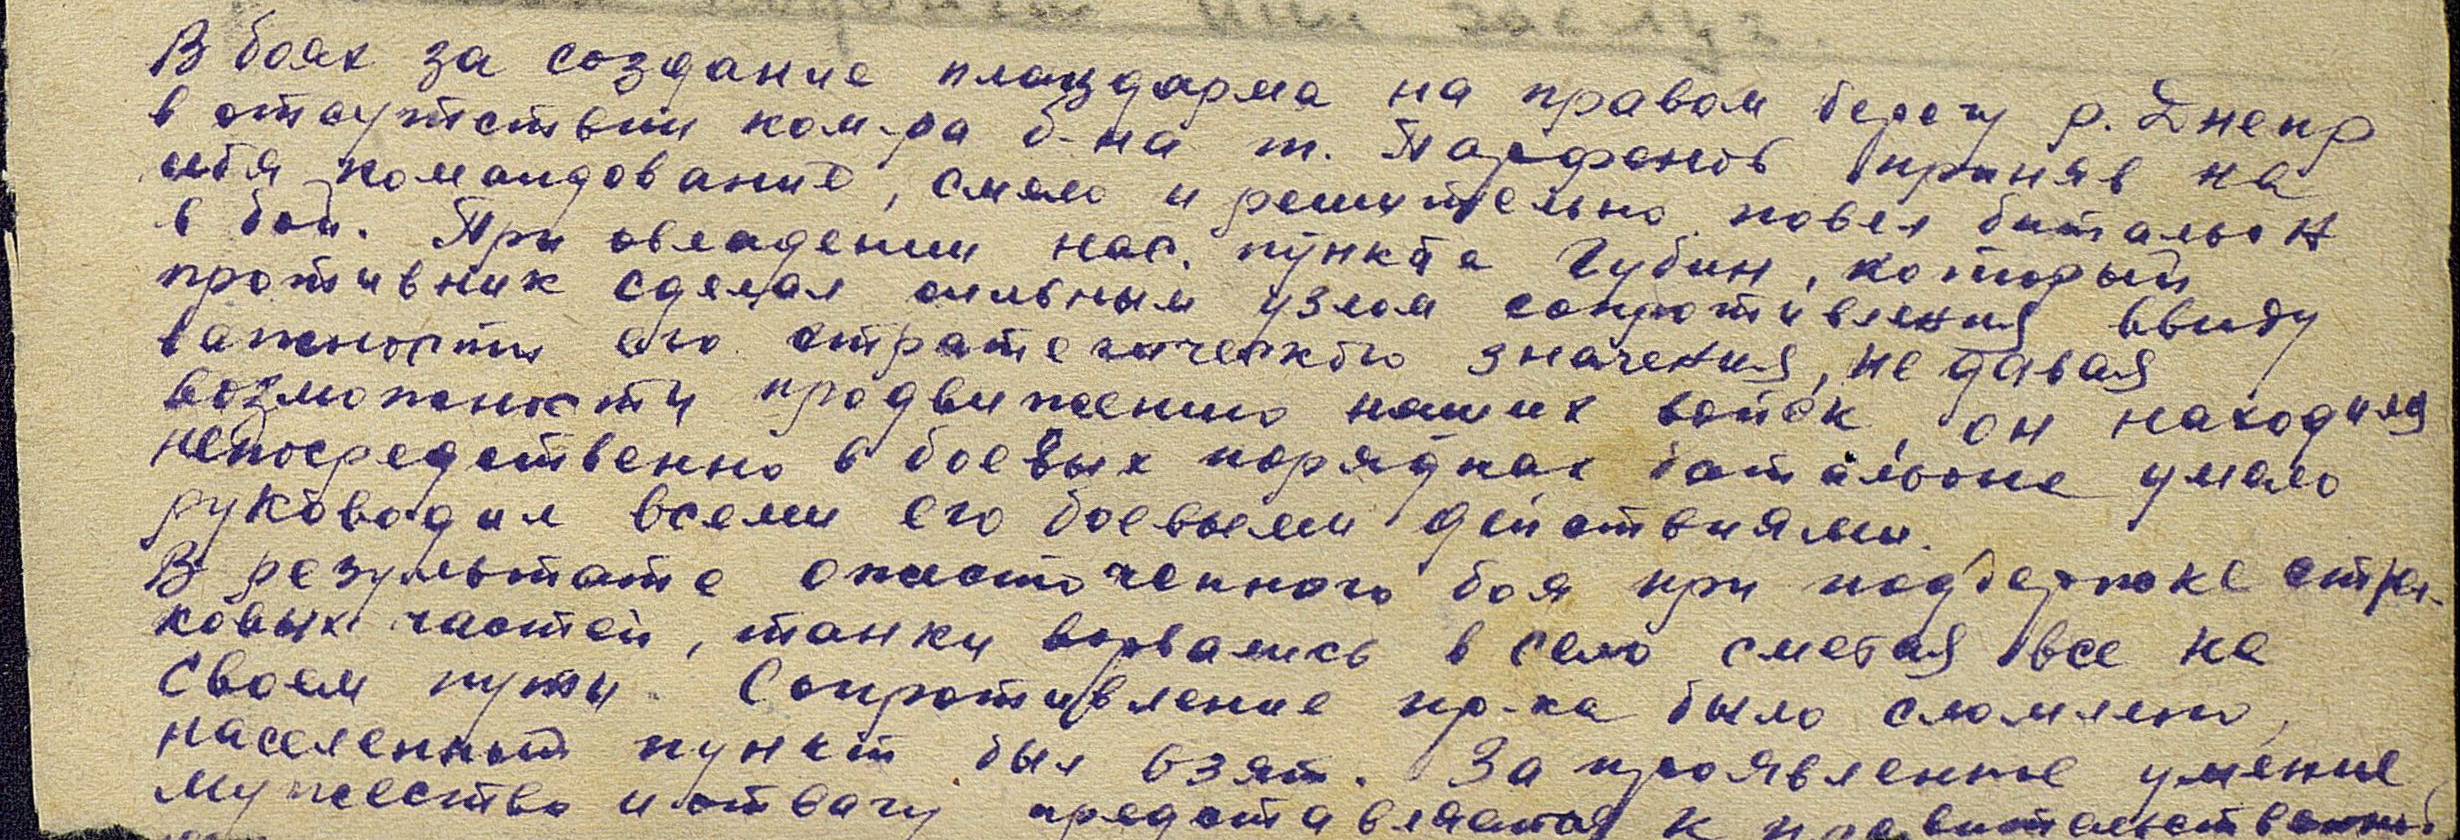 В боях за создание плацдарма на правом берегу р. Днепр
в отсутствии ком-ра б-на т. Парфенов приняв на
себя командование, смело и решительно повел батальон
в бой. При овладении нас. пункта Губин, который
противник сделал сильным узлом сопротивления ввиду
важности его стратегического значения, не давая
возможности продвижению наших войск, он находился
непосредственно в боевых порядках батальона умело
руководил всеми его боевыми действиями.
В результате ожесточенного боя при поддержке стрел-
ковых частей, танки ворвались в село сметая все на
своем пути. Сопротивление пр-ка было сломлено,
населенный пункт был взят. За проявленные умение
мужество и отвагу представляется к правительственной